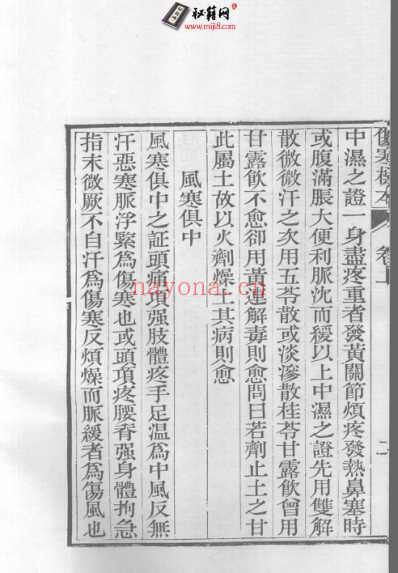 秘籍网
www.miji8.com
傷寒標本
卷上
二
中濕之證一身盡疼重者發黃關節煩疼發熱鼻塞時
或腹滿脹大便利脈沈而緩以上中濕之證先用雙解
散微微汗之次用五苓散或淡滲散桂苓甘露飲曾用
甘露飲不愈卻用黃連解毒則愈問曰若劑止土之甘
此屬土故以火劑燥土其病則愈
風寒俱中
風寒俱中之証頭痛項强肢體疼手足温為中風反無
汗惡寒脈浮緊為傷寒也或頭項疼腰脊强身體拘急
指末微厥不自汗為傷寒反煩燥而脈緩者為傷風也
nayona.cn